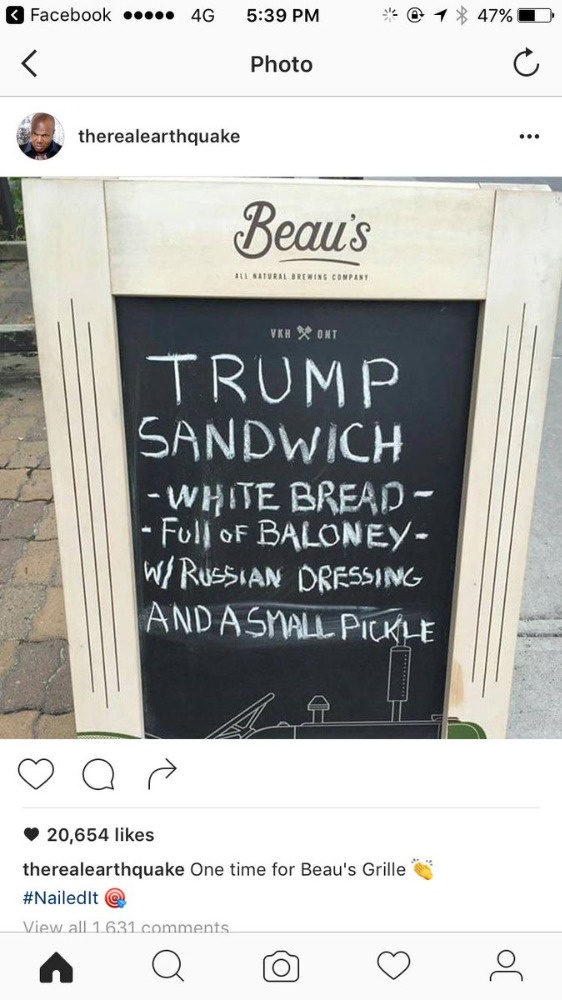 Facebook 4G 5:39 PM 47%
Photo
therealearthquake
Beau's
ALL NATURAL BREWING COMPANY
VKH ONT
TRUMP
SANDWICH
-WHITE BREAD-
-Full of BALONEY-
W/ RUSSIAN DRESSING
AND A SMALL PICKLE
20,654 likes
therealearthquake One time for Beau's Grille 👏
#NailedIt 🎯
View all 1,631 comments